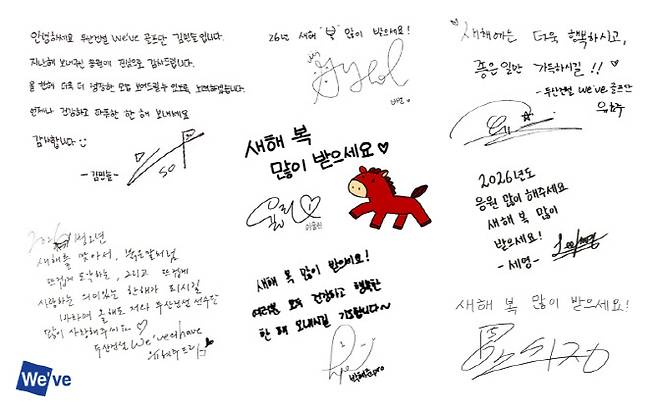 안녕하세요 두산건설 We've 골프단 김민솔입니다.
지난해 보내주신 응원에 진심으로 감사드립니다.
올 한해 더욱 더 성장한 모습 보여드릴수 있도록 노력하겠습니다.
언제나 건강하고 따뜻한 한 해 보내세요
감사합니다
-김민솔-
26년 새해 "복" 많이 받으세요!
새해에는 더욱 행복하시고,
좋은 일만 가득하시길 !!
-두산건설 we've 골프단
유현주
새해 복
많이 받으세요
2026년도
응원 많이 해주세요
새해 복 많이
받으세요!
-세영-
새해를 맞아서, 붉은말처럼
뜨겁게 도약하는, 그리고 뜨겁게
사랑하는 의미있는 한해가 되시길
바라며 올해도 저와 두산건설 선수단
많이 사랑해주세요
두산건설 We've we have
새해 복 많이 받으세요!
여러분 모두 건강하고 행복한
한 해 보내시길 기도합니다~
박혜준pro
새해 복 많이 받으세요!
We've